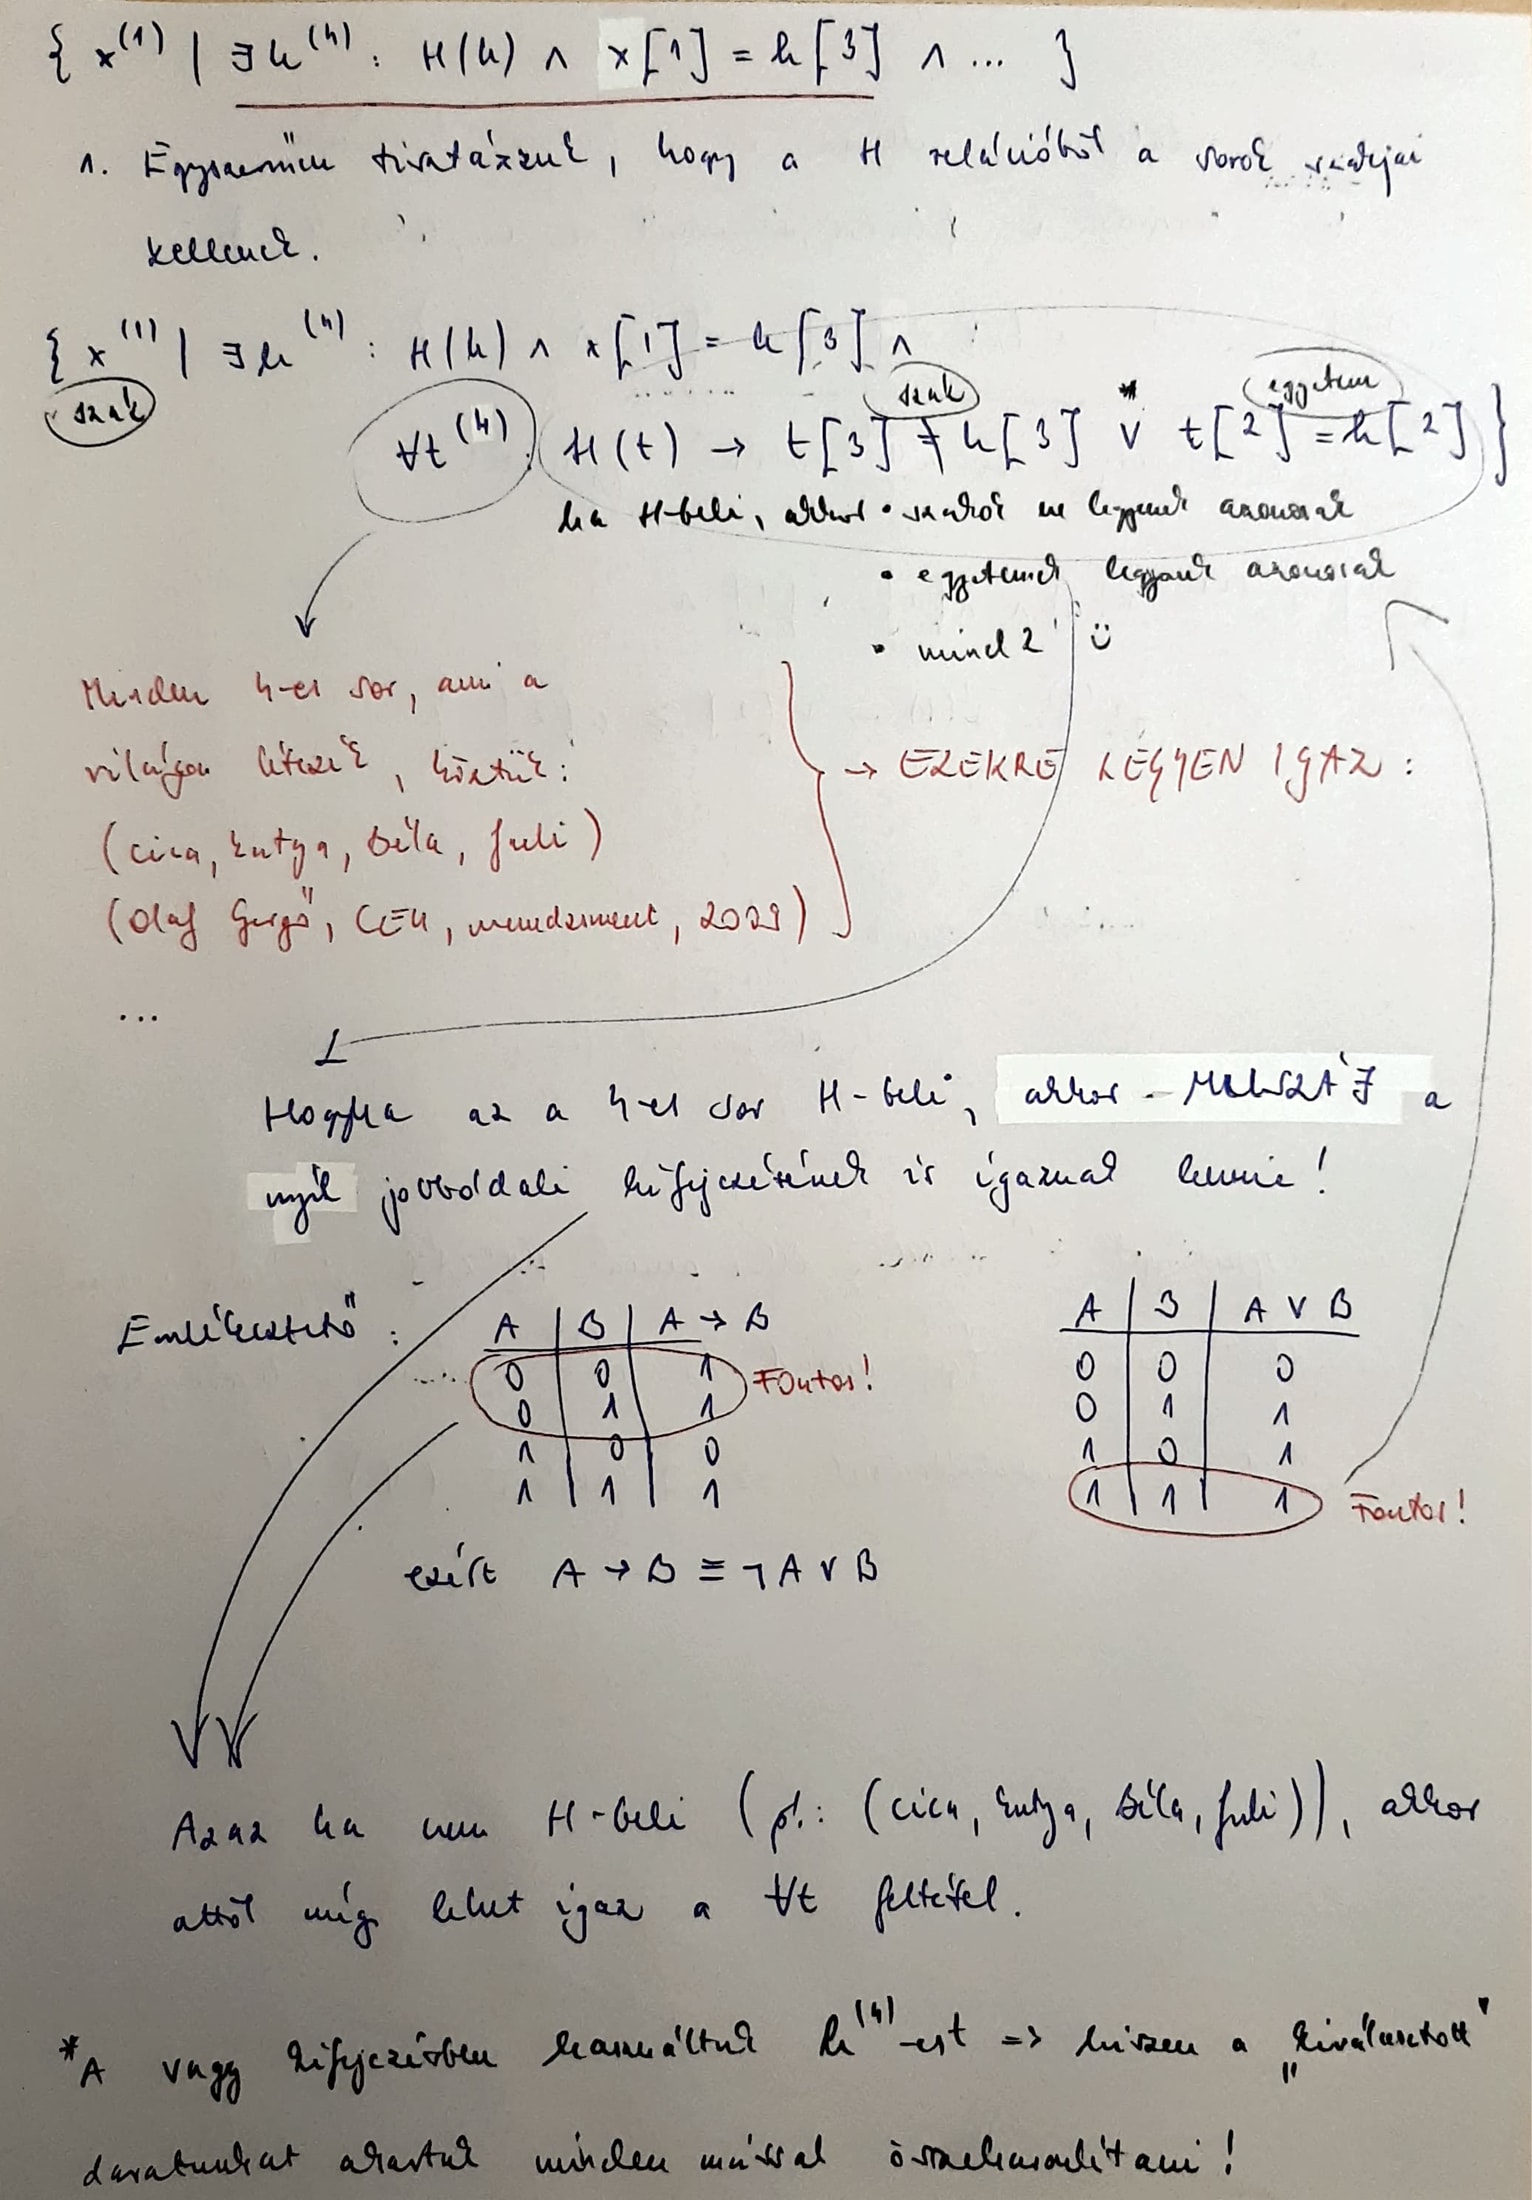 { x^(1) | ∃h^(4) : H(h) ∧ x[1] = h[3] ∧ ... }
1. Egyszerűen tisztázzuk, hogy a H relációból a sorok szakjai
kellenek.
{ x^(1) | ∃h^(4) : H(h) ∧ x[1] = h[3] ∧
szak
szak * egyetem
∀t^(4) : (H(t) → t[3] ≠ h[3] ∨ t[2] = h[2] }
ha H-beli, akkor • szakok ne legyenek azonosak
• egyetemek legyenek azonosak
• mind 2 ü
Minden 4-es sor, ami a
világon létezik, köztük:
→ EZEKRE LEGYEN IGAZ :
(cica, kutya, Béla, Juli)
(Olaf Gergő, CEU, menedzsment, 2029)
...
Hogyha az a 4-es sor H-beli, akkor - MUSZÁJ a
nyíl jobboldali kifejezésének is igaznak lennie!
Emlékeztető :
A | B | A → B
0 0 1 Fontos!
0 1 1
1 0 0
1 1 1
ezért A → B ≡ ¬A ∨ B
A | B | A ∨ B
0 0 0
0 1 1
1 0 1
1 1 1 Fontos!
Azaz ha nem H-beli (pl.: (cica, kutya, Béla, Juli)), akkor
attól még lehet igaz a ∀t feltétel.
*A vagy kifejezésben használtuk h^(4)-est => hiszen a „kiválasztott"
darabunkat akartuk minden mással összehasonlítani!